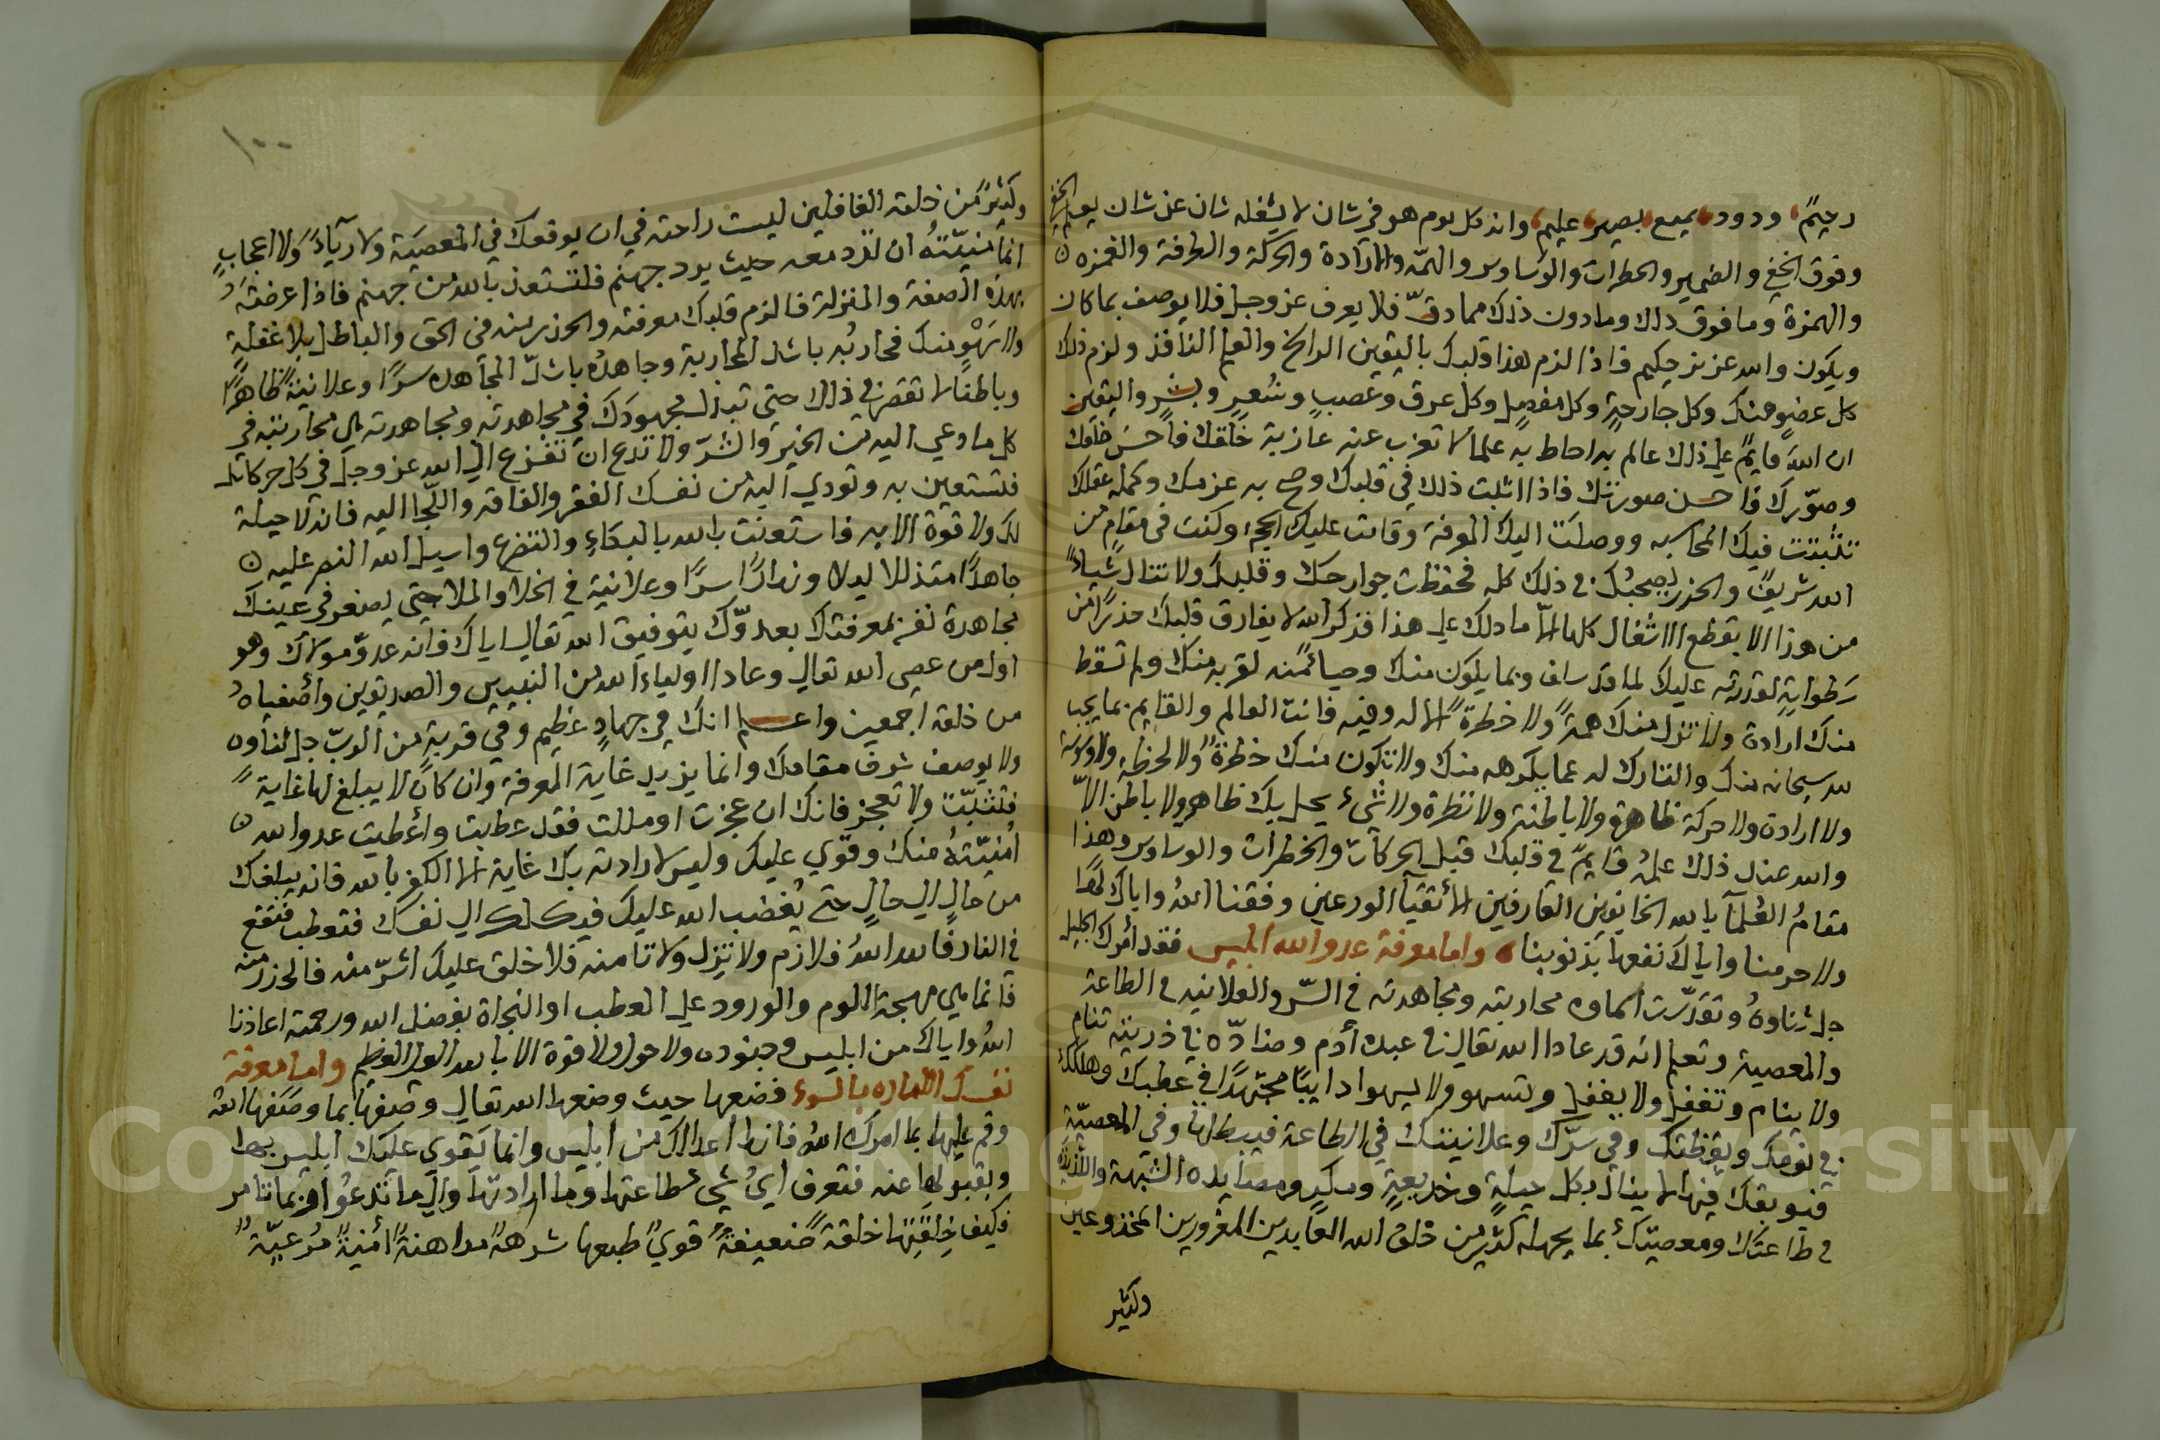 رحيم ودود سميع بصير عليم وانه كل يوم هو في شان لا يشغله شان عن شان يعلم الخفي
وفوق الخفي والضمير والخطرات والوساوس والهمّة والارادة والحركة والطرفة والغمزة
والهمزة وما فوق ذلك وما دون ذلك مما دقّ فلا يعرف عز وجل فلا يوصف بما كان
ويكون والله عزيز حكيم فاذا لزم هذا قلبك باليقين الراسخ والعلم النافذ ولزم ذلك
كل عضو منك وكل جارحةٍ وكل مفصلٍ وكل عرق وعصبٍ وشعرٍ وبشرٍ واليقين
ان الله قايمٌ على ذلك عالم به احاط به علما لا تعزب عنه عازبة خلقك فاحسن خلقك
وصوّرك فاحسن صورتك فاذا اثبت ذلك في قلبك وصح به عزمك وكمله عقلك
تثبتت فيك المحاسبه ووصلت اليك المعرفة وقامت عليك الحجة وكنت في مقام من
الله شريفٍ والحذر يصحبك في ذلك كله فحفظت جوارحك وقلبك ولا تنال شياءً
من هوذا الا بقطع الاشغال كلها الاّ ما دلك على هذا فذكر الله لا يفارق قلبك حذرًا من
سطواته لقدرته عليك لما قد سلف وبما يكون منك وحياءً منه لقربه منك ولم تسقط
منك ارادة ولا تنزل منك همةٌ ولا خطرةٌ الا له وفيه فانت العالم والقايم بما يجب
لله سبحانه منك والتارك له عما يكرهه منك ولا تكون منك خطرةٌ ولا لحظة ولا وسوسة
ولا ارادة ولا حركة ظاهرة ولا باطنة ولا نظرة ولا شيء يحل بك ظاهر ولا باطن الاّ
والله عند ذلك علمٌ قايمٌ في قلبك قبل الحركات والخطرات والوساوس وهذا
مقامُ العُلمآ بالله الخايفين العارفين الأتقيآ الورعين وفقنا اللهُ واياك لها
ولا حرمنا واياك نفعها بذنوبنا واما معرفة عدو الله ابليس فقد أمرك الجليل
جل ثناوهُ وتقدّست اسماوه محاربته ومجاهدته في السّر والعلانيه في الطاعة
والمعصية وتعلم انه قد عادا الله تعالى في عبده آدم وضادّه في ذريته تنام
ولا ينام وتغفل ولا يغفل وتسهو ولا يسهوا دايبًا مجتهدًا في عطبك وهلاكك
في نومك ويقظتك وفي سرّك وعلانيتك في الطاعة فيبطلها وفي المعصيّة
فيوبقك فيها لا ينال بكل حيلةٍ وخديعةٍ ومكرٍ ومصايده الشبهة واللذيذة
في طاعتك ومعصيتك بما يجهله كثير من خلق الله العابدين المغرورين المخدوعين
وكثير
١٠٠
وكثيرٌ من خلقه الغافلين ليست راحته في ان يوقعك في المعصيَة ولا رآياءً ولا اعجابٍ
انما منيّتهُ ان تَرِد معه حيث يرد جهنم فلتستعذ بالله من جهنم فاذا عرفتهُ
بهذه الصفة والمنزلة فالزم قلبك معرفته والحذر منه في الحق والباطل بلا غفلةٍ
ولا سَهْوٍ منك فحاربُه باشد المحاربة وجاهدهُ باشدّ المجآهده سرًا وعلانيةً ظاهرًا
وباطنًا لا تقصر في ذلك حتى تبذل مجهودَك في مجاهدته ومجاهدته الى محاربته في
كل ما دعي اليه من الخير والشرّ ولا تدع ان تفزع الى الله عز وجل في كل حركاتك
فتستعين به وتودي اليه من نفسك الفقر والفاقه واللّجا اليه فانه لا حيلة
لك ولا قوة الا به فاستعنت بالله بالبكاءِ والتضرع واسيل الله النصر عليه
جاهدًا متذللا ليلا ونهارًا سرًا وعلانية في الخلا والملا حتى يصغر في عينك
مجاهدة نفر بمعرفتك بعدوّك بتوفيق الله تعالى اياك فانه عدوّ مولاك وهو
اول من عصى الله تعالى وعادا اولياء الله من النبيين والصديقين واصفياهُ
من خلقه اجمعين واعلم انك في جهادٍ عظيم وفي قربةٍ من الربّ جل ثناوه
ولا يوصف شرف مقامك وانما يزيد غاية المعرفة وان كان لا يبلغ لها غايةً
فتثبّت ولا تعجز فانك ان عجزت او مللت فقد عطبت وأعطيت عدو الله
أُمنيّتهُ منك وقوي عليك وليس لارادته بك غاية الا الكفر بالله فانه يبلغك
من حالٍ الى حالٍ حتى يُغضب الله عليك فيكلك الى نفسك فتعطب فتقع
في النار فالله اللهُ فلازم ولا تنزل ولا تامنه فلا خلق عليك أشرّ منه فالحذر منه
فانما هي مهجة اليوم والورود على العطب او النجاة بفضل الله ورحمته اعاذنا
اللهُ واياك من ابليس وجنوده ولا حول ولا قوة الا بالله العلي العظيم واما معرفة
نفسك الامّاره بالسوء فضعها حيث وضعها الله تعالى وصفها بما وصَفها الله
وقم عليها بما امرك اللهُ فانها اعدالك من ابليس وانما يَقوي عليك ابليس بها
وبقبولها عنه فتعرف ايُّ شيء طاعتها وما ارادتها والى ما تدعُوا وبما تامر
فكيف خِلقتِها خلقةً ضعيفةً قويٌ طبعها شرهةٌ مداهنةٌ امنيةٌ مُرعبةٌ